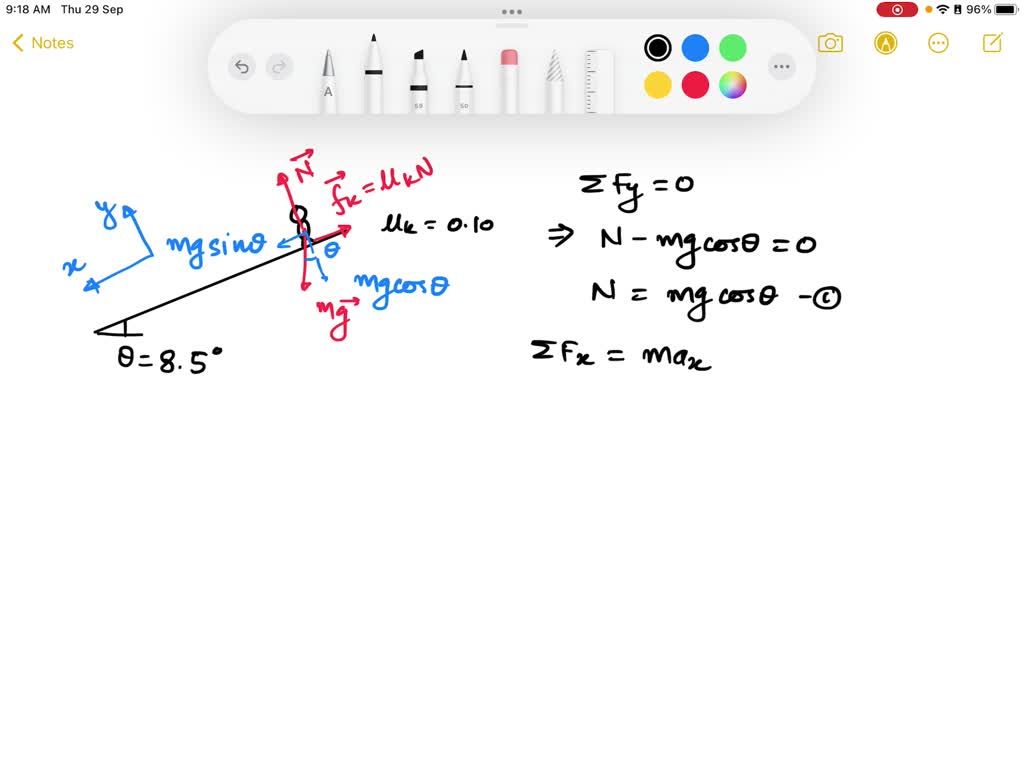 9:18 AM Thu 29 Sep
96%
Notes
A
59
50
N⃗
f⃗k = μkN
μk = 0.10
y
x
mg sinθ
θ
mg cosθ
mg⃗
θ = 8.5°
ΣFy = 0
⇒ N - mg cosθ = 0
N = mg cosθ
ΣFx = max